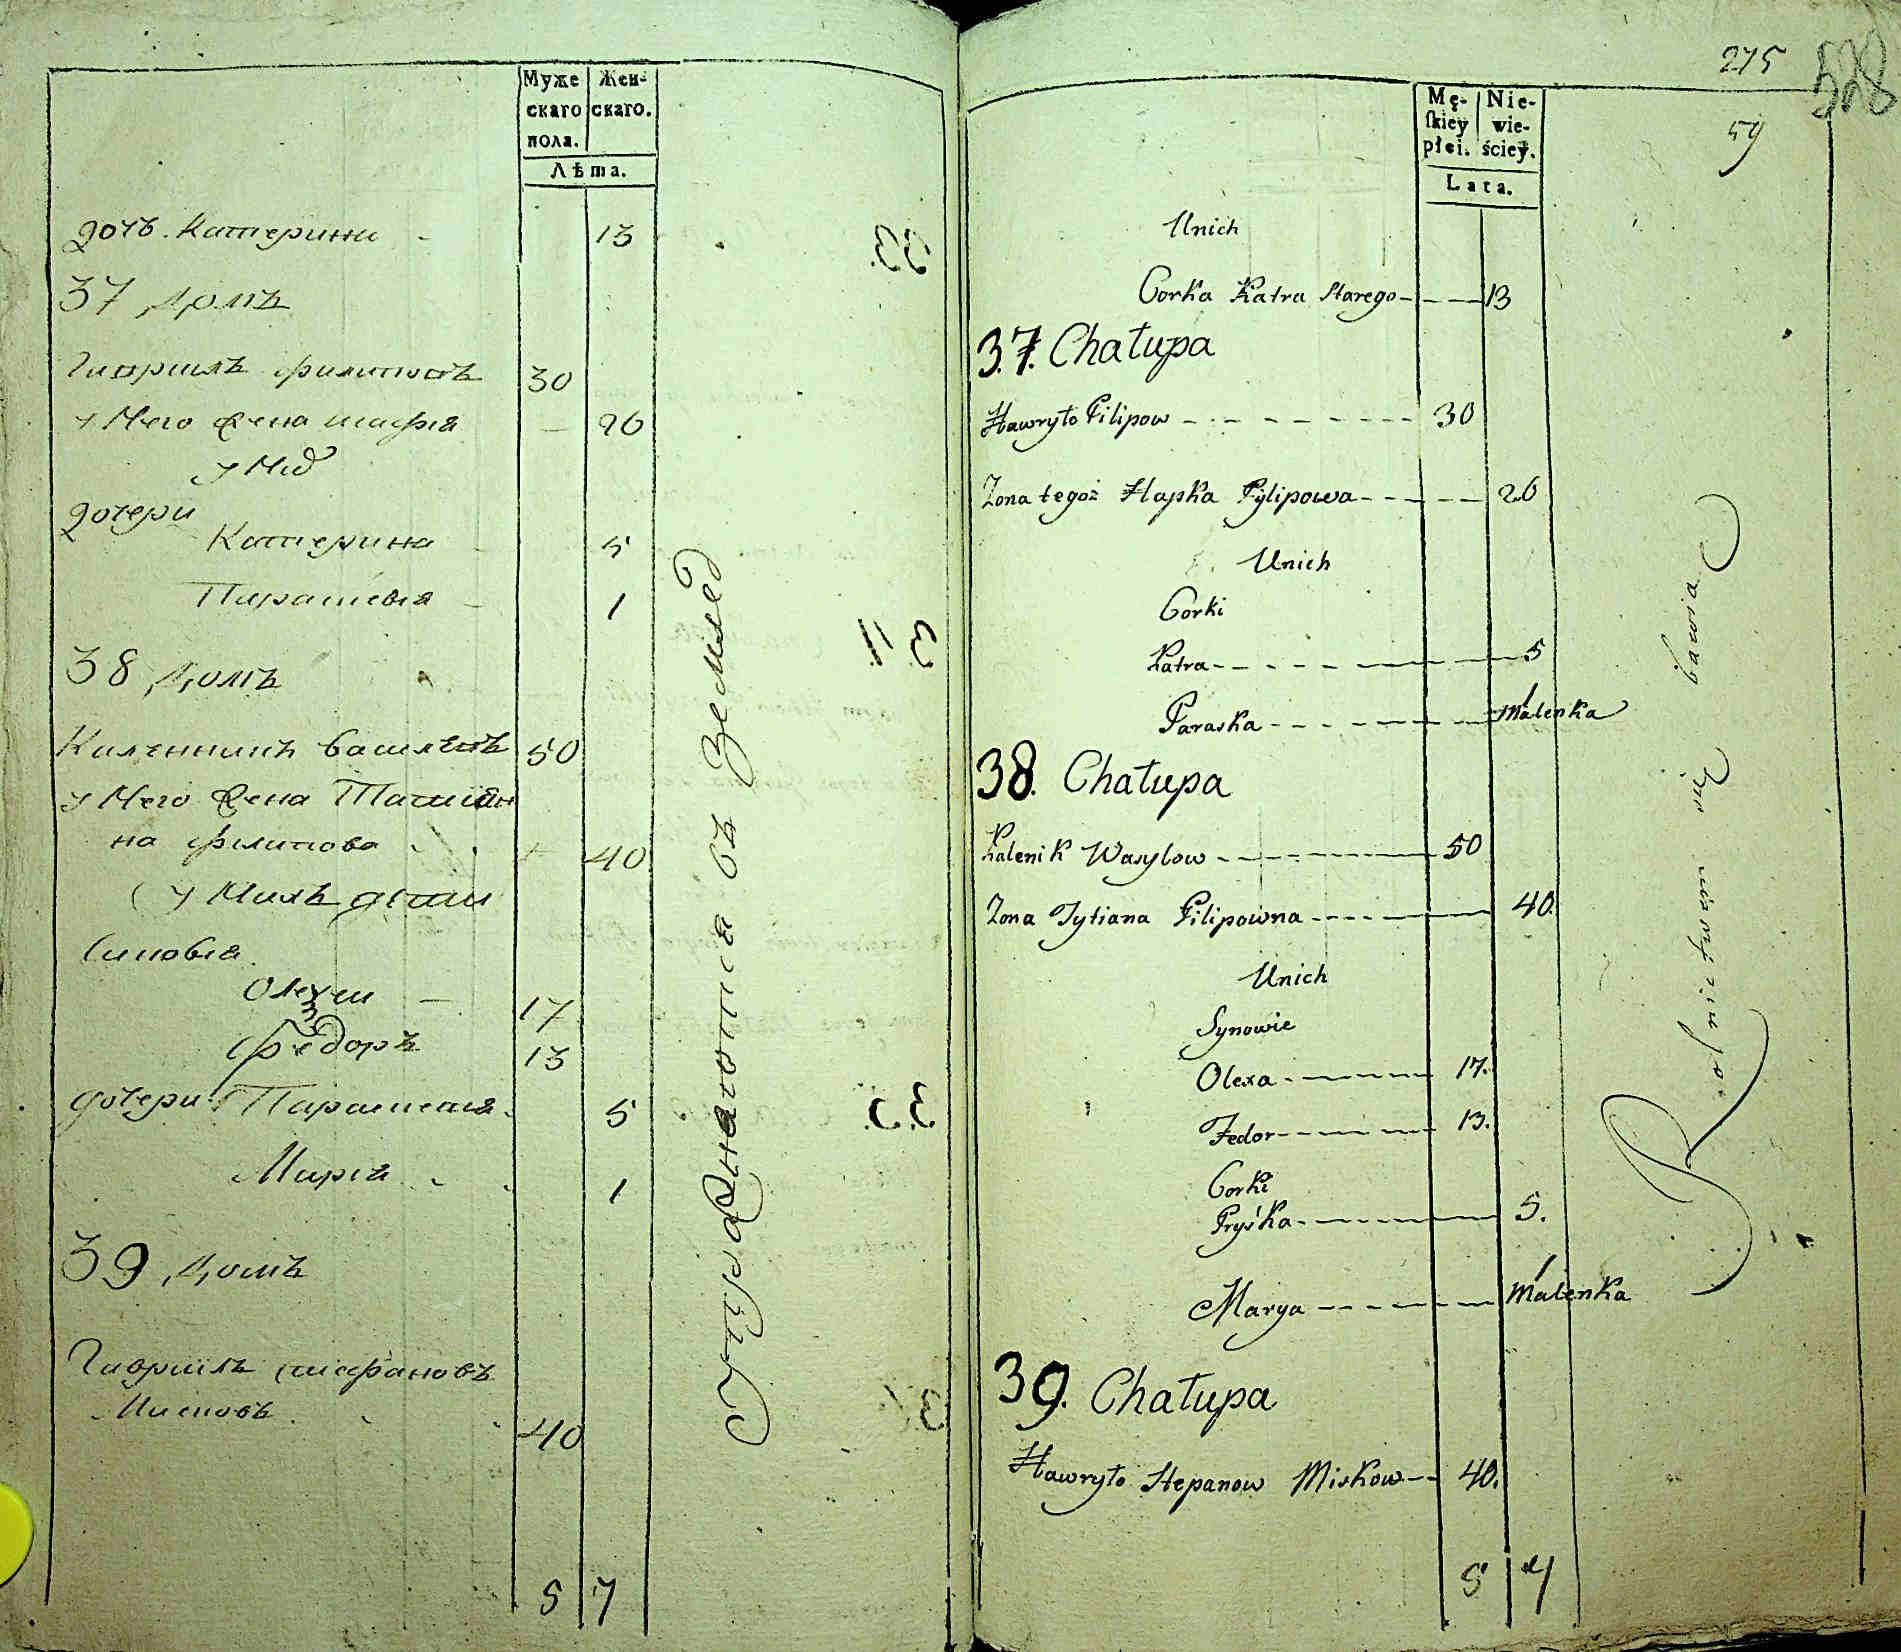 Муже
скаго
пола.
Жен-
скаго.
Лѣта.
дочь Катерина - 13
37 домъ
Гаврилъ Филиповъ 30
у Него Жена Гапфiя - 26
у Них
дочери
Катерина - 5
Парасковiя - 1
38 домъ
Каленникъ Василевъ 50
у Него Жена Татиян
на Филипова 40
у Нихъ дети
Синовiя
Олехси - 17
Федоръ 13
дочери Парасковiя 5
Марiя 1
39 домъ
Гаврилъ Стефановъ
Мисковъ 40
5 7
Упражнаютса въ Землед
275
528
59
Mę-
skiey
płci.
Nie-
wie-
ściey.
Lata.
Unich
Corka Katra Starego - - - 13
37. Chałupa
Hawryło Filipow - - - - - - 30
Zona tegoż Hapka Fylipowa - - - - - 26
Unich
Corki
Katra - - - - - - 5
Paraska - - - - - - 1 Malenka
38. Chałupa
Kalenik Wasylow - - - - - 50
Zona Tytiana Filipowna - - - - 40.
Unich
Synowie
Olexa - - - - 17.
Fedor - - - - 13.
Corki
Pryśka - - - - - 5.
Marya - - - - - 1 Malenka
39. Chałupa
Hawryło Stepanow Miskow - - 40.
5 7
Rolnictwem się bawia